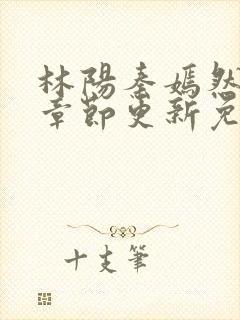 林陽秦嫣然
章節更新免
十支筆